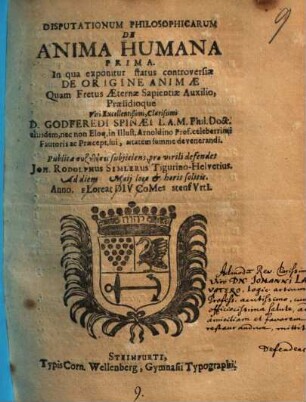 DISPUTATIONUM PHILOSOPHICARUM
DE
ANIMA HUMANA
PRIMA.
In qua exponitur status controversiæ
DE ORIGINE ANIMÆ
Quam Fretus Æternæ Sapientiæ Auxilio,
Præsidioque
Viri Excellentissimi, Clarissimi
D. GODFREDI SPINÆI L.A.M. Phil. Doct.
ejusdem, nec non Eloq. in Illust. Arnoldino Prof. celeberrimi
Fautoris ac Præcept. sui, ætatem summe devenerandi.
Publicæ συζητήσει subjiciens, pro virili defendet
JOH. RODOLPHUS SIMLERUS Tigurino-Helvetius.
Ad diem Maij loco & horis solitis.
Anno.
STEINFURTI,
Typis Corn. Wellenberg, Gymnasii Typographi.
Admodum Rev. Clarissimo
Viro Dn. JOHANNI LA
VATERO, Logic.
Profess.
officiosissima salute,
favorem
mittit
Defendens
9.